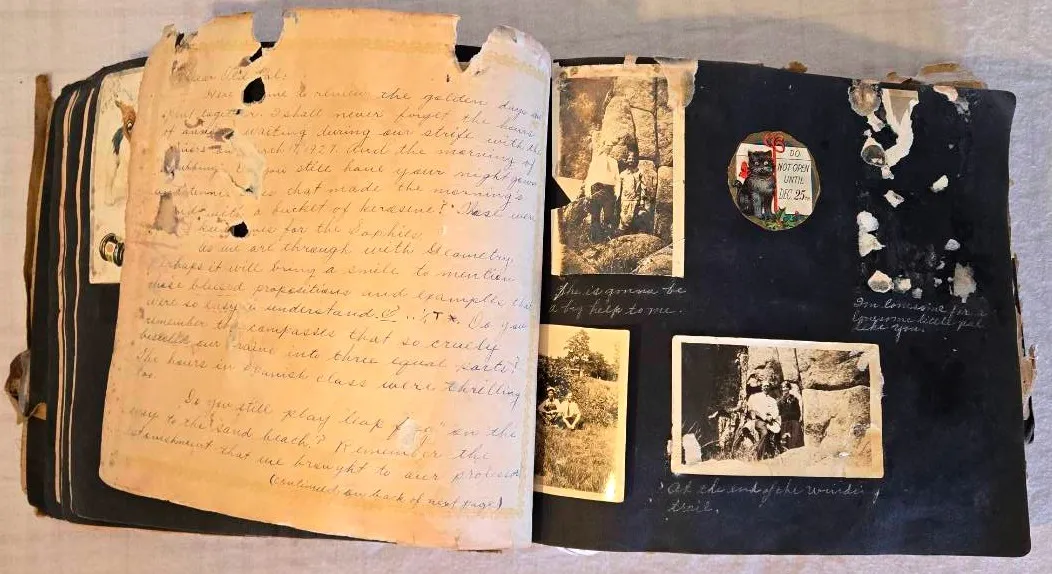 the golden days we
spent together. I shall never forget the hours
waiting during our strife with the
1927. And the morning of
you still have your nightgown
that made the morning's
a bucket of kerosine? Those were
for the Sophils.
As we are through with Geometry
perhaps it will bring a smile to mention
those blessed propositions and examples that
were so easy to understand
remember the compasses that so cruely
our into three equal parts?
The hours in Spanish class were thrilling
too.
Do you still play "leap frog" on the
way to the "sand beach"? Remember the
astonishment that we brought to our professor
(continued on back of next page)
She is gonna be
a big help to me.
DO
NOT OPEN
UNTIL
DEC. 25TH
I'm lonesome for a
lonesome little pal
like you.
At the end of the winding
trail.